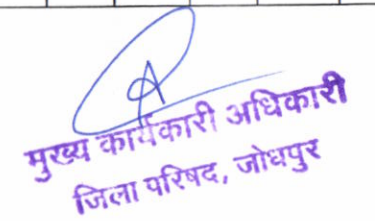 मुख्य कार्यकारी अधिकारी
जिला परिषद, जोधपुर